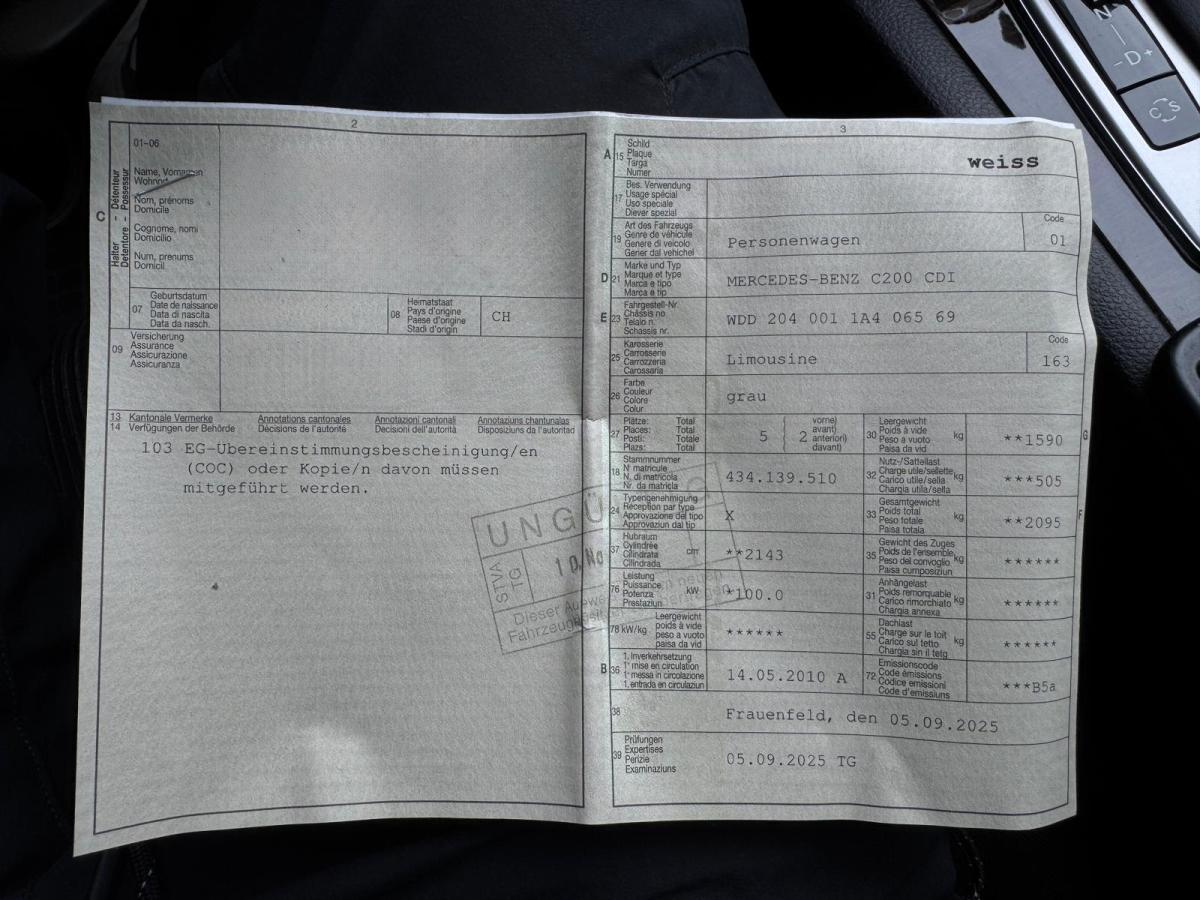 2
C
Halter - Detenteur
Detentore - Possessur
01-06
Name, Vornamen
Wohnort
Nom, prénoms
Domicile
Cognome, nomi
Domicilio
Num, prenums
Domicil
07
Geburtsdatum
Date de naissance
Data di nascita
Data da nasch.
08
Heimatstaat
Pays d'origine
Paese d'origine
Stadi d'origin
CH
09
Versicherung
Assurance
Assicurazione
Assicuranza
13 Kantonale Vermerke Annotations cantonales Annotazioni cantonali Annotaziuns chantunalas
14 Verfügungen der Behörde Décisions de l'autorité Decisioni dell'autorità Disposiziuns da l'autoritad
103 EG-Übereinstimmungsbescheinigung/en
(COC) oder Kopie/n davon müssen
mitgeführt werden.
STVA
TG
10. No
Dieser
3
A 15
Schild
Plaque
Targa
Numer
weiss
17
Bes. Verwendung
Usage spécial
Uso speciale
Diever spezial
19
Art des Fahrzeugs
Genre de véhicule
Genere di veicolo
Gener dal vehichel
Personenwagen
Code
01
D 21
Marke und Typ
Marque et type
Marca e tipo
Marca e tip
MERCEDES-BENZ C200 CDI
E 23
Fahrgestell-Nr.
Châssis no
Telaio n.
Schassis nr.
WDD 204 001 1A4 065 69
25
Karosserie
Carrosserie
Carrozzeria
Carossaria
Limousine
Code
163
26
Farbe
Couleur
Colore
Colur
grau
27
Plätze: Total
Places: Total
Posti: Totale
Plazs: Total
5
2
vorne)
avant)
anteriori)
davant)
30
Leergewicht
Poids à vide
Peso a vuoto
Paisa da vid
kg
**1590
G
18
Stammnummer
N° matricule
N. di matricola
Nr. da matricla
434.139.510
32
Nutz-/Sattellast
Charge utile/sellette
Carico utile/sella
Chargia utila/sella
kg
***505
24
Typengenehmigung
Réception par type
Approvazione del tipo
Approvaziun dal tip
X
33
Gesamtgewicht
Poids total
Peso totale
Paisa totala
kg
**2095
F
37
Hubraum
Cylindrée
Cilindrata
Cilindrada
cm³
**2143
35
Gewicht des Zuges
Poids de l'ensemble
Peso del convoglio
Paisa cumposiziun
kg
******
76
Leistung
Puissance
Potenza
Prestaziun
kW
*100.0
31
Anhängelast
Poids remorquable
Carico rimorchiato
Chargia annexa
kg
******
78 kW/kg
Leergewicht
poids à vide
peso a vuoto
paisa da vid
******
55
Dachlast
Charge sur le toit
Carico sul tetto
Chargia sin il tetg
kg
******
B 36
1. Inverkehrsetzung
1° mise en circulation
1° messa in circolazione
1. entrada en circulaziun
14.05.2010 A
72
Emissionscode
Code émissions
Codice emissioni
Code d'emissiuns
***B5a
38
Frauenfeld, den 05.09.2025
39
Prüfungen
Expertises
Perizie
Examinaziuns
05.09.2025 TG
N
-D+
C S